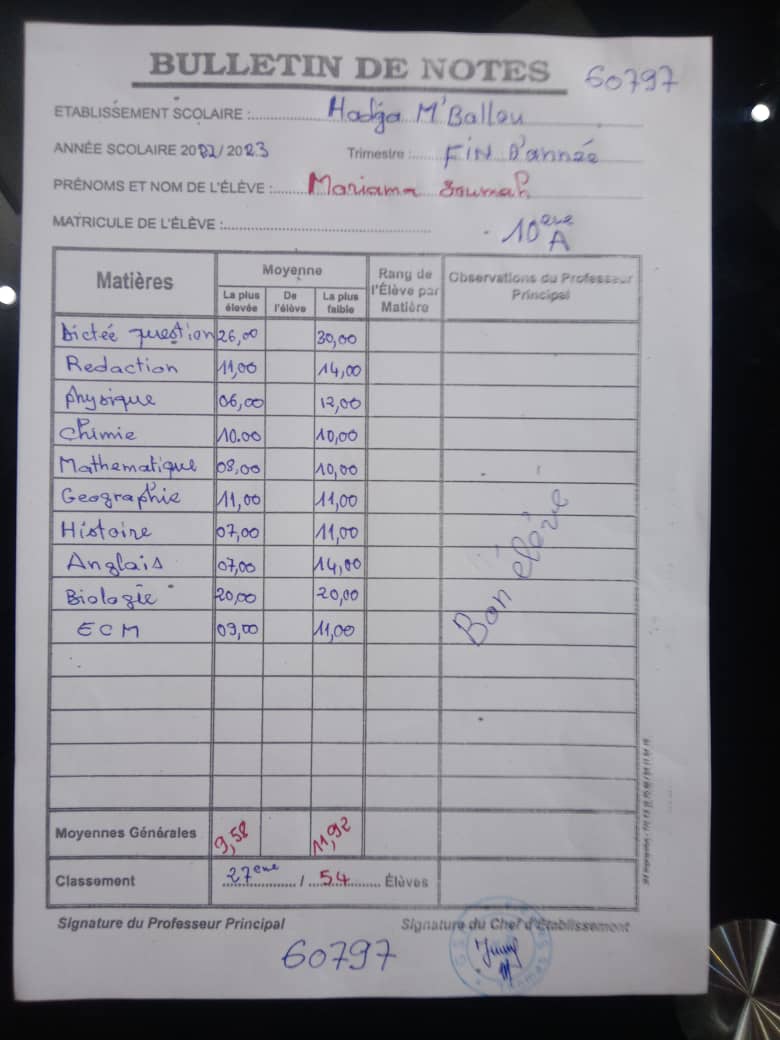 BULLETIN DE NOTES 60797
ETABLISSEMENT SCOLAIRE : Hadja M'Ballou
ANNÉE SCOLAIRE 2022/2023 Trimestre : FIN D'année
PRÉNOMS ET NOM DE L'ÉLÈVE : Mariama Soumah
MATRICULE DE L'ÉLÈVE :
10ème A
Matières Moyenne Rang de l'Élève par Matière Observations du Professeur Principal
La plus élevée De l'élève La plus faible
Dictée question 26,00 30,00
Redaction 11,00 14,00
physique 06,00 12,00
chimie 10.00 10,00
Mathematique 08,00 10,00
Geographie 11,00 11,00
Histoire 07,00 11,00
Anglais 07,00 14,00
Biologie 20,00 20,00
ECM 09,00 11,00
Bon élève
Moyennes Générales 9,58 11,92
Classement 27eme / 54 Élèves
Signature du Professeur Principal Signature du Chef d'Établissement
60797